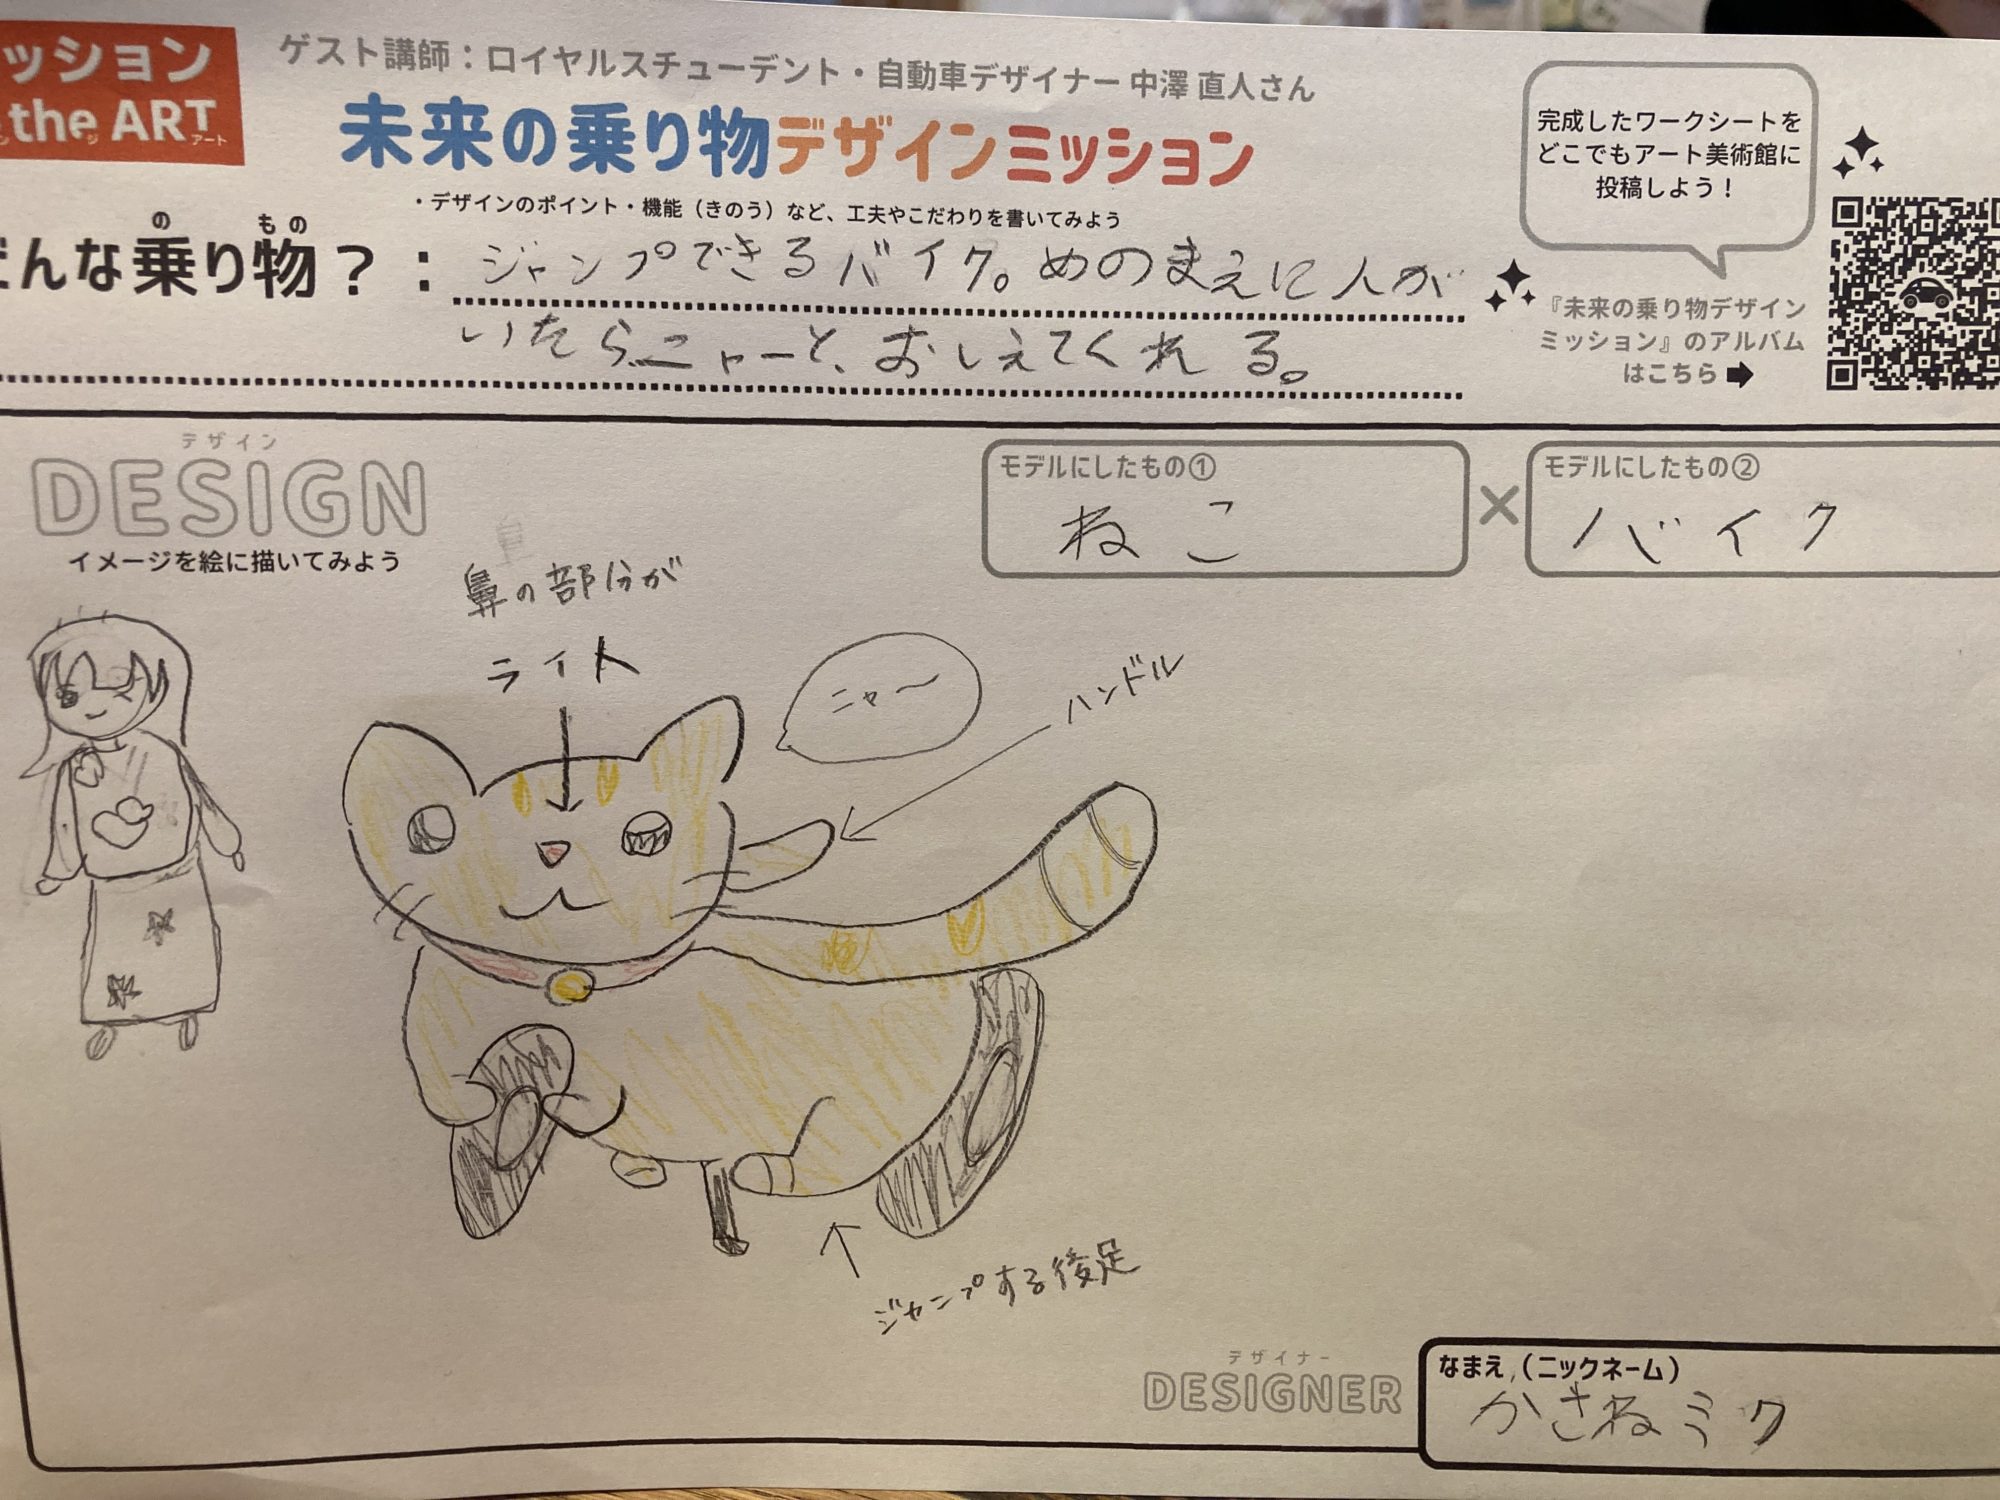 ッション
the ART
アート
ゲスト講師：ロイヤルスチューデント・自動車デザイナー 中澤 直人さん
未来の乗り物デザインミッション
・デザインのポイント・機能（きのう）など、工夫やこだわりを書いてみよう
の もの
どんな乗り物？：
ジャンプできるバイク。めのまえに人が
いたらニャーと、おしえてくれる。
完成したワークシートを
どこでもアート美術館に
投稿しよう！
『未来の乗り物デザイン
ミッション』のアルバム
はこちら
デザイン
DESIGN
イメージを絵に描いてみよう
モデルにしたもの①
ねこ
×
モデルにしたもの②
バイク
鼻の部分が
ライト
ニャ〜
ハンドル
ジャンプする後足
デザイナー
DESIGNER
なまえ（ニックネーム）
かさねミク